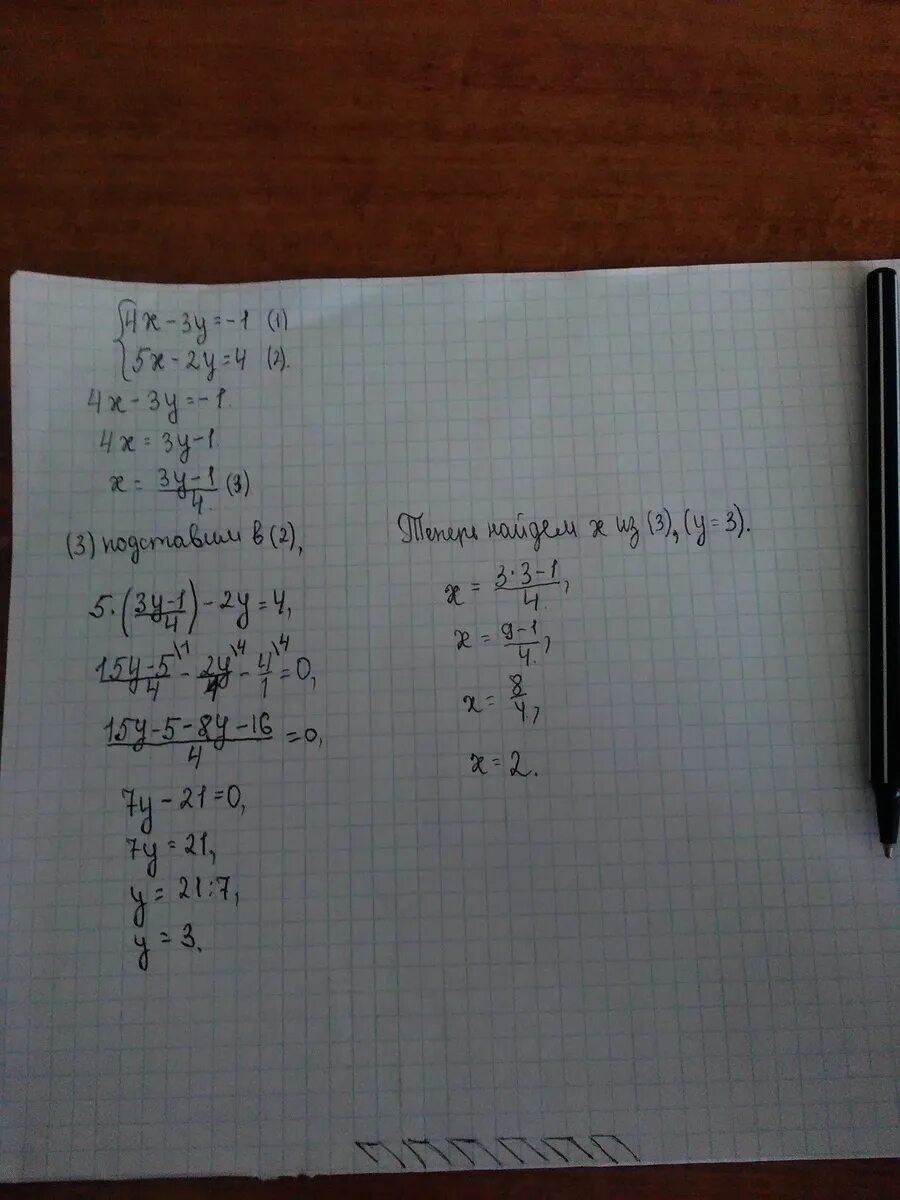 {4x-3y=-1 (1)
{5x-2y=4 (2).
4x-3y=-1.
4x=3y-1
x=\frac{3y-1}{4.} (3)
(3) подставим в (2),
5·(\frac{3y-1}{4})-2y=4,
\frac{15y-5}{4}^{\1}-\frac{2y}{1}^{\4}-\frac{4}{1}^{\4}=0,
\frac{15y-5-8y-16}{4}=0,
7y-21=0,
7y=21,
y=21:7,
y=3.
Теперь найдем x из (3), (y=3).
x=\frac{3·3-1}{4.},
x=\frac{9-1}{4.},
x=\frac{8}{4},
x=2.